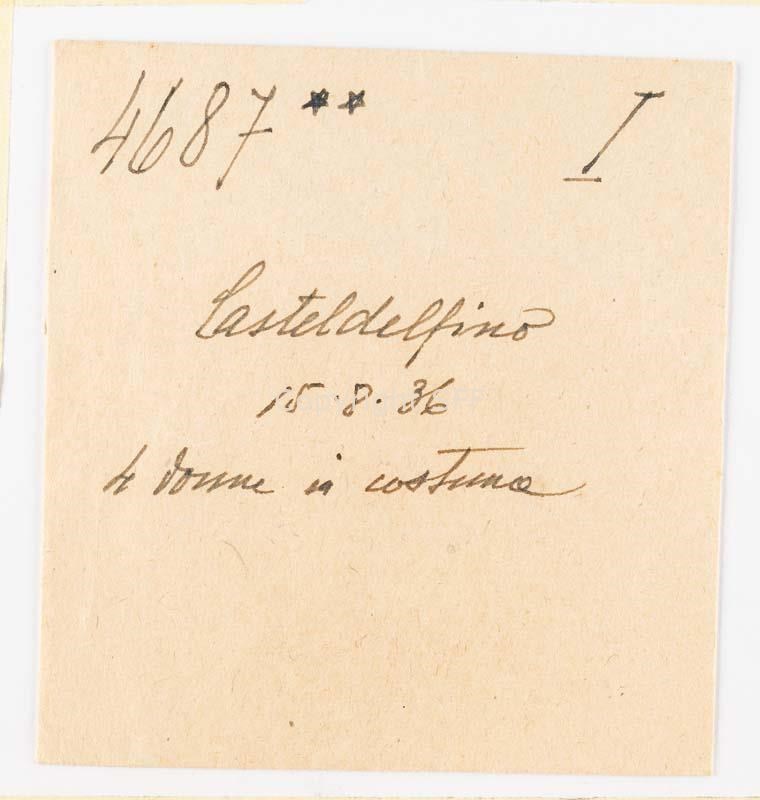 4687 ** I
Casteldelfino
15.8.36
4 donne in costume